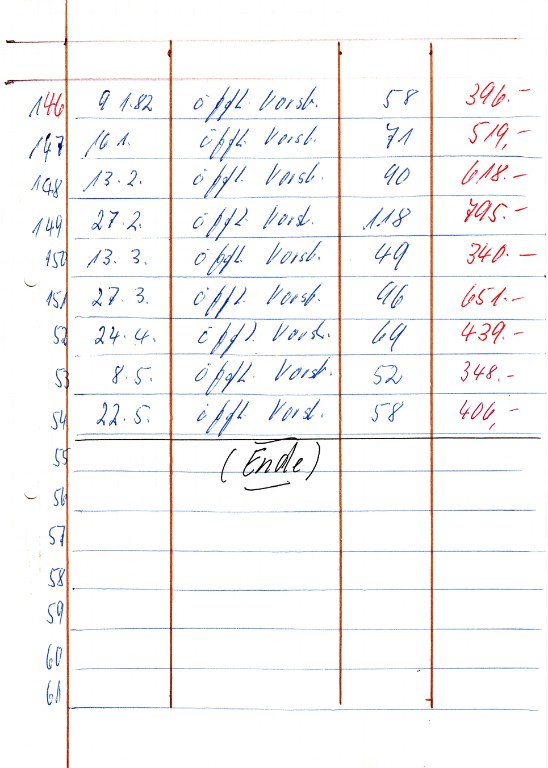 146 9 1.82 öffl. Vorst. 58 396.-
147 16 1. öffl. Vorst. 71 519,-
148 13.2. öffl. Vorst. 90 618.-
149 27.2. öffl. Vorst. 118 795.-
150 13.3. öffl. Vorst. 49 340.-
151 27.3. öffl. Vorst. 96 651.-
52 24.4. öffl. Vorst. 69 439.-
53 8.5. öffl. Vorst. 52 348.-
54 22.5. öffl. Vorst. 58 406,-
55 (Ende)
56
57
58
59
60
61